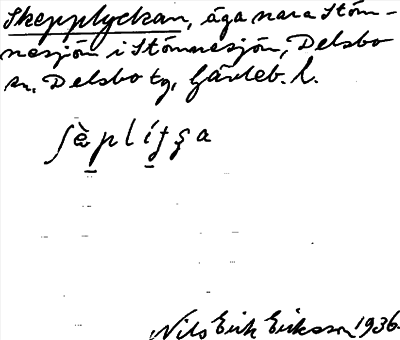 Skepplyckan, äga nära Stöm-
nesjön i Stömnesjön, Delsbo
sn, Delsbo tg, Gävleb. l.
Nils Erik Eriksson 1936.